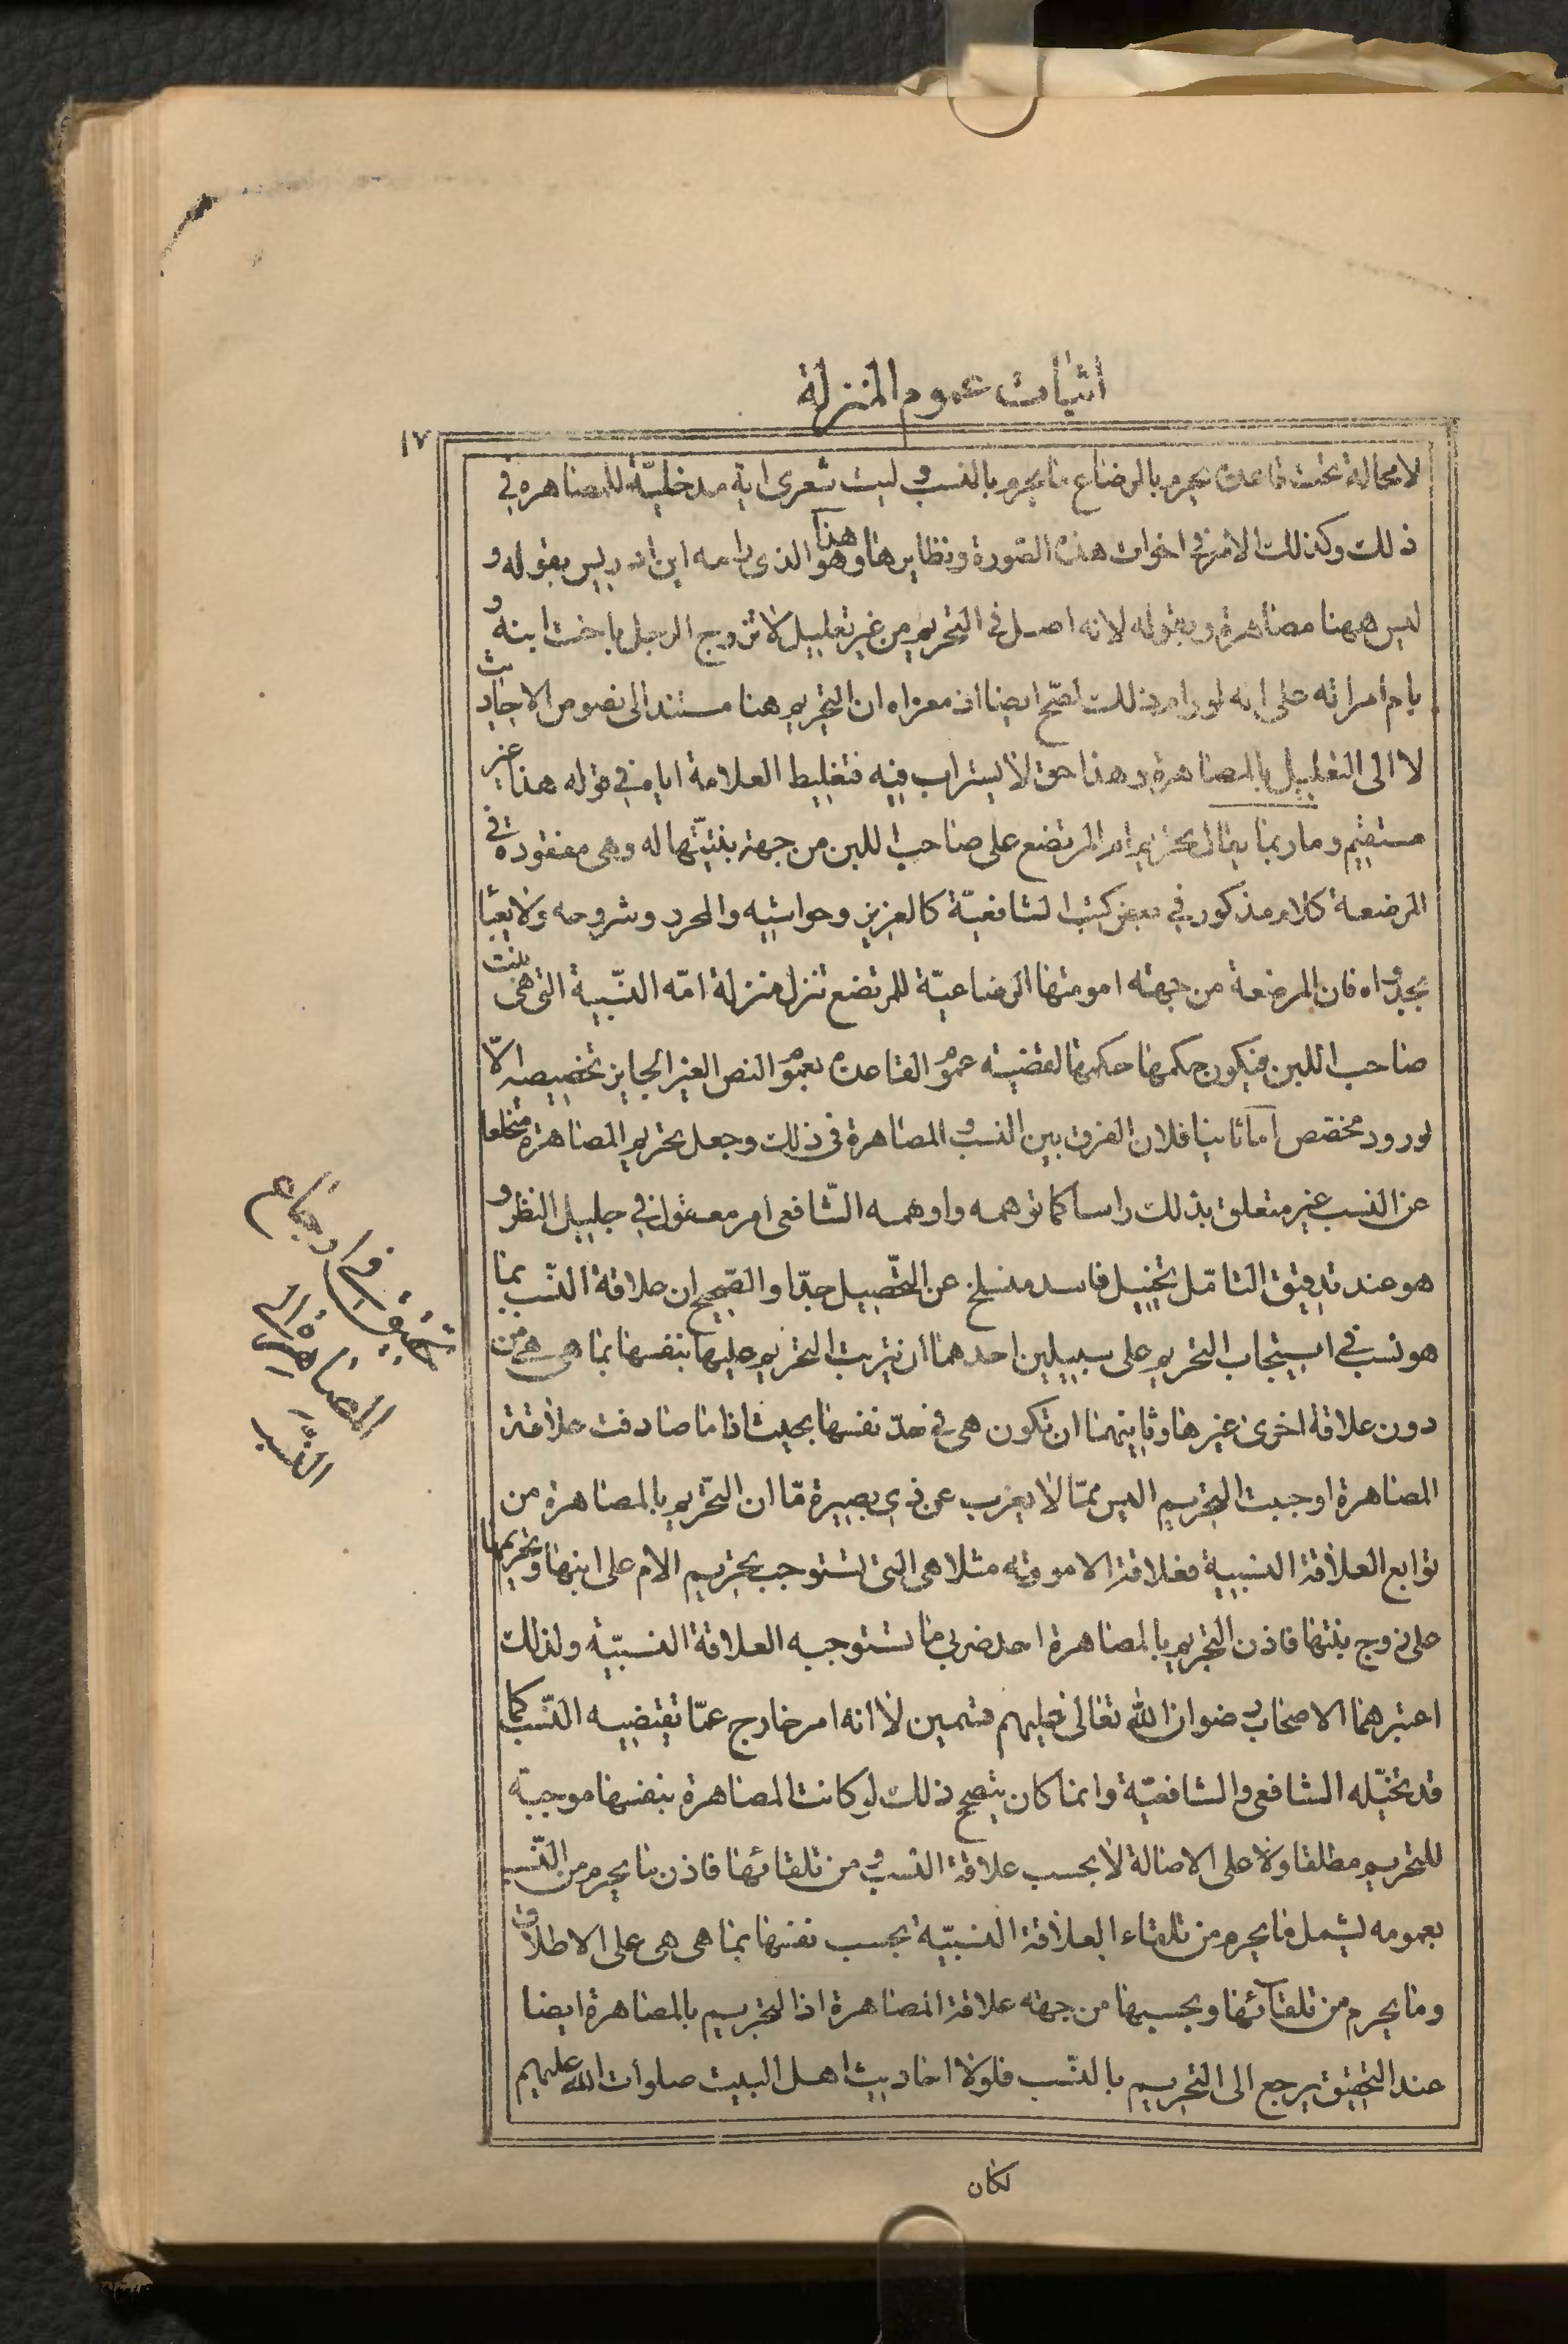 اثبات عموم المنزلة
١٧
لا محالة تحت قاعدة يحرم بالرضاع ما يحرم بالنسب و ليت شعرى اية مدخليّة للمصاهرة فى
ذلك وكذلك الامر فى اخوات هذه الصورة ونظايرها وهذا هو الذى رامه ابن ادريس بقوله و
ليس ههنا مصاهرة وبقوله لانه اصل فى التحريم من غير تعليل لا تزوج الرجل باخت ابنه و
بام امراته على انه لو رام ذلك لصّح ايضا اذ مغزاه ان التحريم هنا مستند الى نصوص الاحاديث
لا الى التعليل بالمصاهرة وهذا حق لا يستراب فيه فتغليط العلامة اياه فى قوله هذا غير
مستقيم وما ربما يقال تحريم ام المرتضع على صاحب اللبن من جهة بنتيّتها له وهى مفقودة فى
المرضعة كلام مذكور فى بعض كتب الشافعيّة كالعزيز وحواشيه والمحرر وشروحه ولا يعبأ
بجدواه فان المرضعة من جهة امومتها الرضاعيّة للمرتضع تنزل منزلة امّه النسّبية التى هى بنت
صاحب اللبن فيكون حكمها حكمها لقضية عموم القاعدة بعموم النص الغير الجايز تخصيصه الّا
لورود مخصص اما ثانيا فلان الفرق بين النسب و المصاهرة فى ذلك وجعل تحريم المصاهرة منخلعا
عن النسب غير متعلق بذلك راسا كما توهمه واوهمه الشّافعى امر معقول فى جليل النظر و
هو عند تدقيق التامّل تخييل فاسد منسلخ عن التحّصيل جدّا والصّحيح ان علاقة النسّب بما
هو نسب فى استيجاب التحريم على سبيلين احدهما ان يترتب التحريم عليها بنفسها بما هى هى من
دون علاقة اخرى غيرها وثانيهما ان تكون هى فى حدّ نفسها بحيث اذا ما صادفت علاقة
المصاهرة اوجبت التحريم اليس ممّا لا يعزب عن ذى بصيرة مّا ان التّحريم بالمصاهرة من
توابع العلاقة النسبية فعلاقة الامومة مثلا هى التى تستوجب تحريم الام على ابنها وتحريمها
على زوج بنتها فاذن التحريم بالمصاهرة احد ضربى ما تستوجبه العلاقة النسبيّة ولذلك
اعتبرهما الاصحاب رضوان الله تعالى عليهم قسمين لا انه امر خارج عمّا تقتضيه النسّب كما
قد تخيّله الشافعى والشافعيّة وانما كان يتصح ذلك لو كانت المصاهرة بنفسها موجبة
للتحريم مطلقا ولا على الاصالة لا بحسب علاقة النسب و من تلقائها فاذن ما يحرم من النسّب
بعمومه يشمل ما يحرم من تلقاء العلاقة النسبيّة بحسب نفسها بما هى هى على الاطلاق
وما يحرم من تلقائها وبحسبها من جهة علاقة المصاهرة اذا التحريم بالمصاهرة ايضا
عند التحقيق يرجع الى التحريم بالنسّب فلولا احاديث اهل البيت صلوات الله عليهم
لكان
تحقيق فى ارجاع
المصاهرة الى
النسب